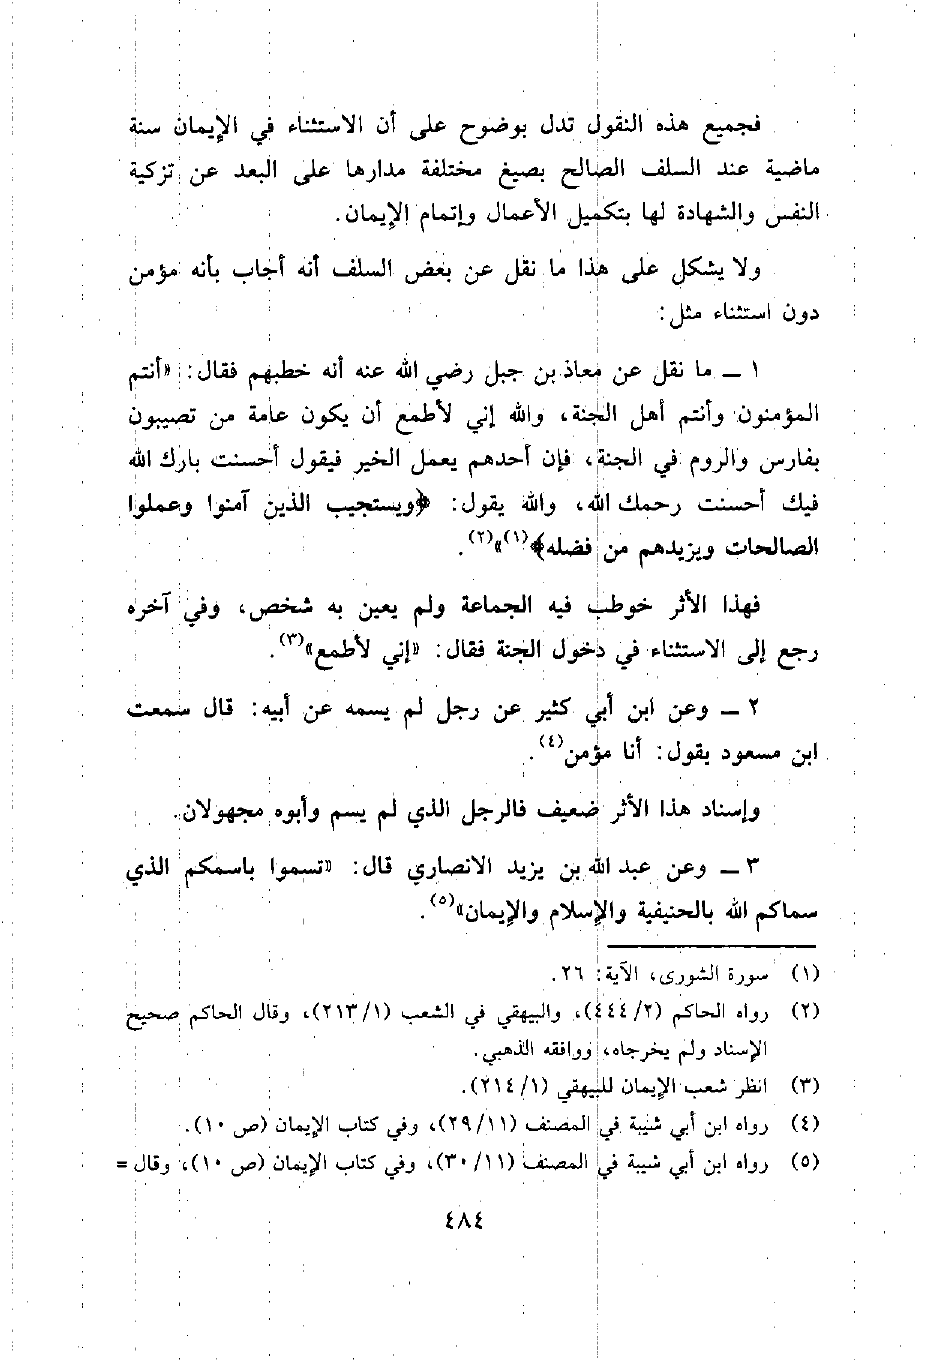 فجميع هذه النقول تدل بوضوح على أن الاستثناء في الإيمان سنة
ماضية عند السلف الصالح بصيغ مختلفة مدارها على البعد عن تزكية
النفس والشهادة لها بتكميل الأعمال وإتمام الإيمان.
ولا يشكل على هذا ما نقل عن بعض السلف أنه أجاب بأنه مؤمن
دون استثناء مثل:
١ ــ ما نقل عن معاذ بن جبل رضي الله عنه أنه خطبهم فقال: «أنتم
المؤمنون وأنتم أهل الجنة، والله إني لأطمع أن يكون عامة من تصيبون
بفارس والروم في الجنة، فإن أحدهم يعمل الخير فيقول أحسنت بارك الله
فيك أحسنت رحمك الله، والله يقول: ﴿ويستجيب الذين آمنوا وعملوا
الصالحات ويزيدهم من فضله﴾(١)»(٢).
فهذا الأثر خوطب فيه الجماعة ولم يعين به شخص، وفي آخره
رجع إلى الاستثناء في دخول الجنة فقال: «إني لأطمع»(٣).
٢ ــ وعن ابن أبي كثير عن رجل لم يسمه عن أبيه: قال سمعت
ابن مسعود يقول: أنا مؤمن(٤).
وإسناد هذا الأثر ضعيف فالرجل الذي لم يسم وأبوه مجهولان.
٣ ــ وعن عبد الله بن يزيد الانصاري قال: «تسموا باسمكم الذي
سماكم الله بالحنيفية والإسلام والإيمان»(٥).
(١) سورة الشورى، الآية: ٢٦.
(٢) رواه الحاكم (٢/٤٤٤)، والبيهقي في الشعب (١/٢١٣)، وقال الحاكم صحيح
الإسناد ولم يخرجاه، ووافقه الذهبي.
(٣) انظر شعب الإيمان للبيهقي (١/٢١٤).
(٤) رواه ابن أبي شيبة في المصنف (١١/٢٩)، وفي كتاب الإيمان (ص ١٠).
(٥) رواه ابن أبي شيبة في المصنف (١١/٣٠)، وفي كتاب الإيمان (ص ١٠)، وقال =
٤٨٤